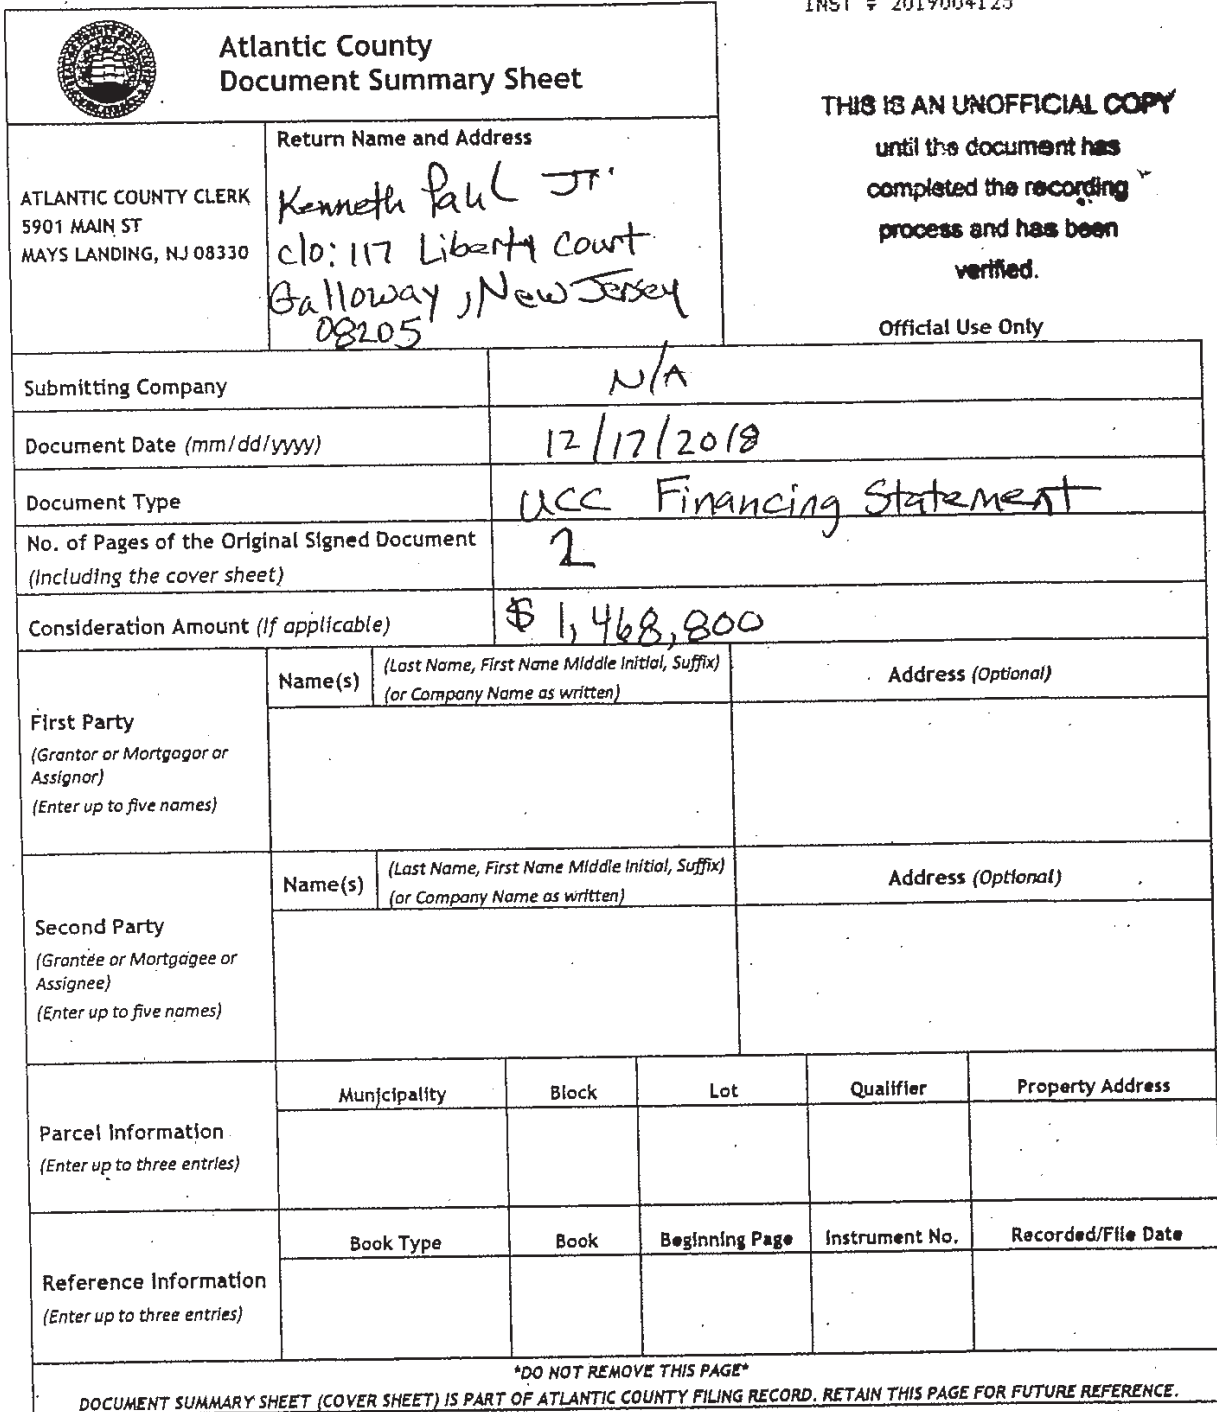 INST # 2019004125
Atlantic County
Document Summary Sheet
THIS IS AN UNOFFICIAL COPY
until the document has
completed the recording
process and has been
verified.
Official Use Only
ATLANTIC COUNTY CLERK
5901 MAIN ST
MAYS LANDING, NJ 08330
Return Name and Address
Kenneth Paul Jr.
c/o: 117 Liberty Court
Galloway, New Jersey
08205
Submitting Company
N/A
Document Date (mm/dd/yyyy)
12/17/2018
Document Type
UCC Financing Statement
No. of Pages of the Original Signed Document
(Including the cover sheet)
2
Consideration Amount (If applicable)
$ 1,468,800
First Party
(Grantor or Mortgagor or
Assignor)
(Enter up to five names)
Name(s)
(Last Name, First Name Middle Initial, Suffix)
(or Company Name as written)
Address (Optional)
Second Party
(Grantee or Mortgagee or
Assignee)
(Enter up to five names)
Name(s)
(Last Name, First Name Middle Initial, Suffix)
(or Company Name as written)
Address (Optional)
Parcel Information
(Enter up to three entries)
Municipality
Block
Lot
Qualifier
Property Address
Reference Information
(Enter up to three entries)
Book Type
Book
Beginning Page
Instrument No.
Recorded/File Date
*DO NOT REMOVE THIS PAGE*
DOCUMENT SUMMARY SHEET (COVER SHEET) IS PART OF ATLANTIC COUNTY FILING RECORD. RETAIN THIS PAGE FOR FUTURE REFERENCE.